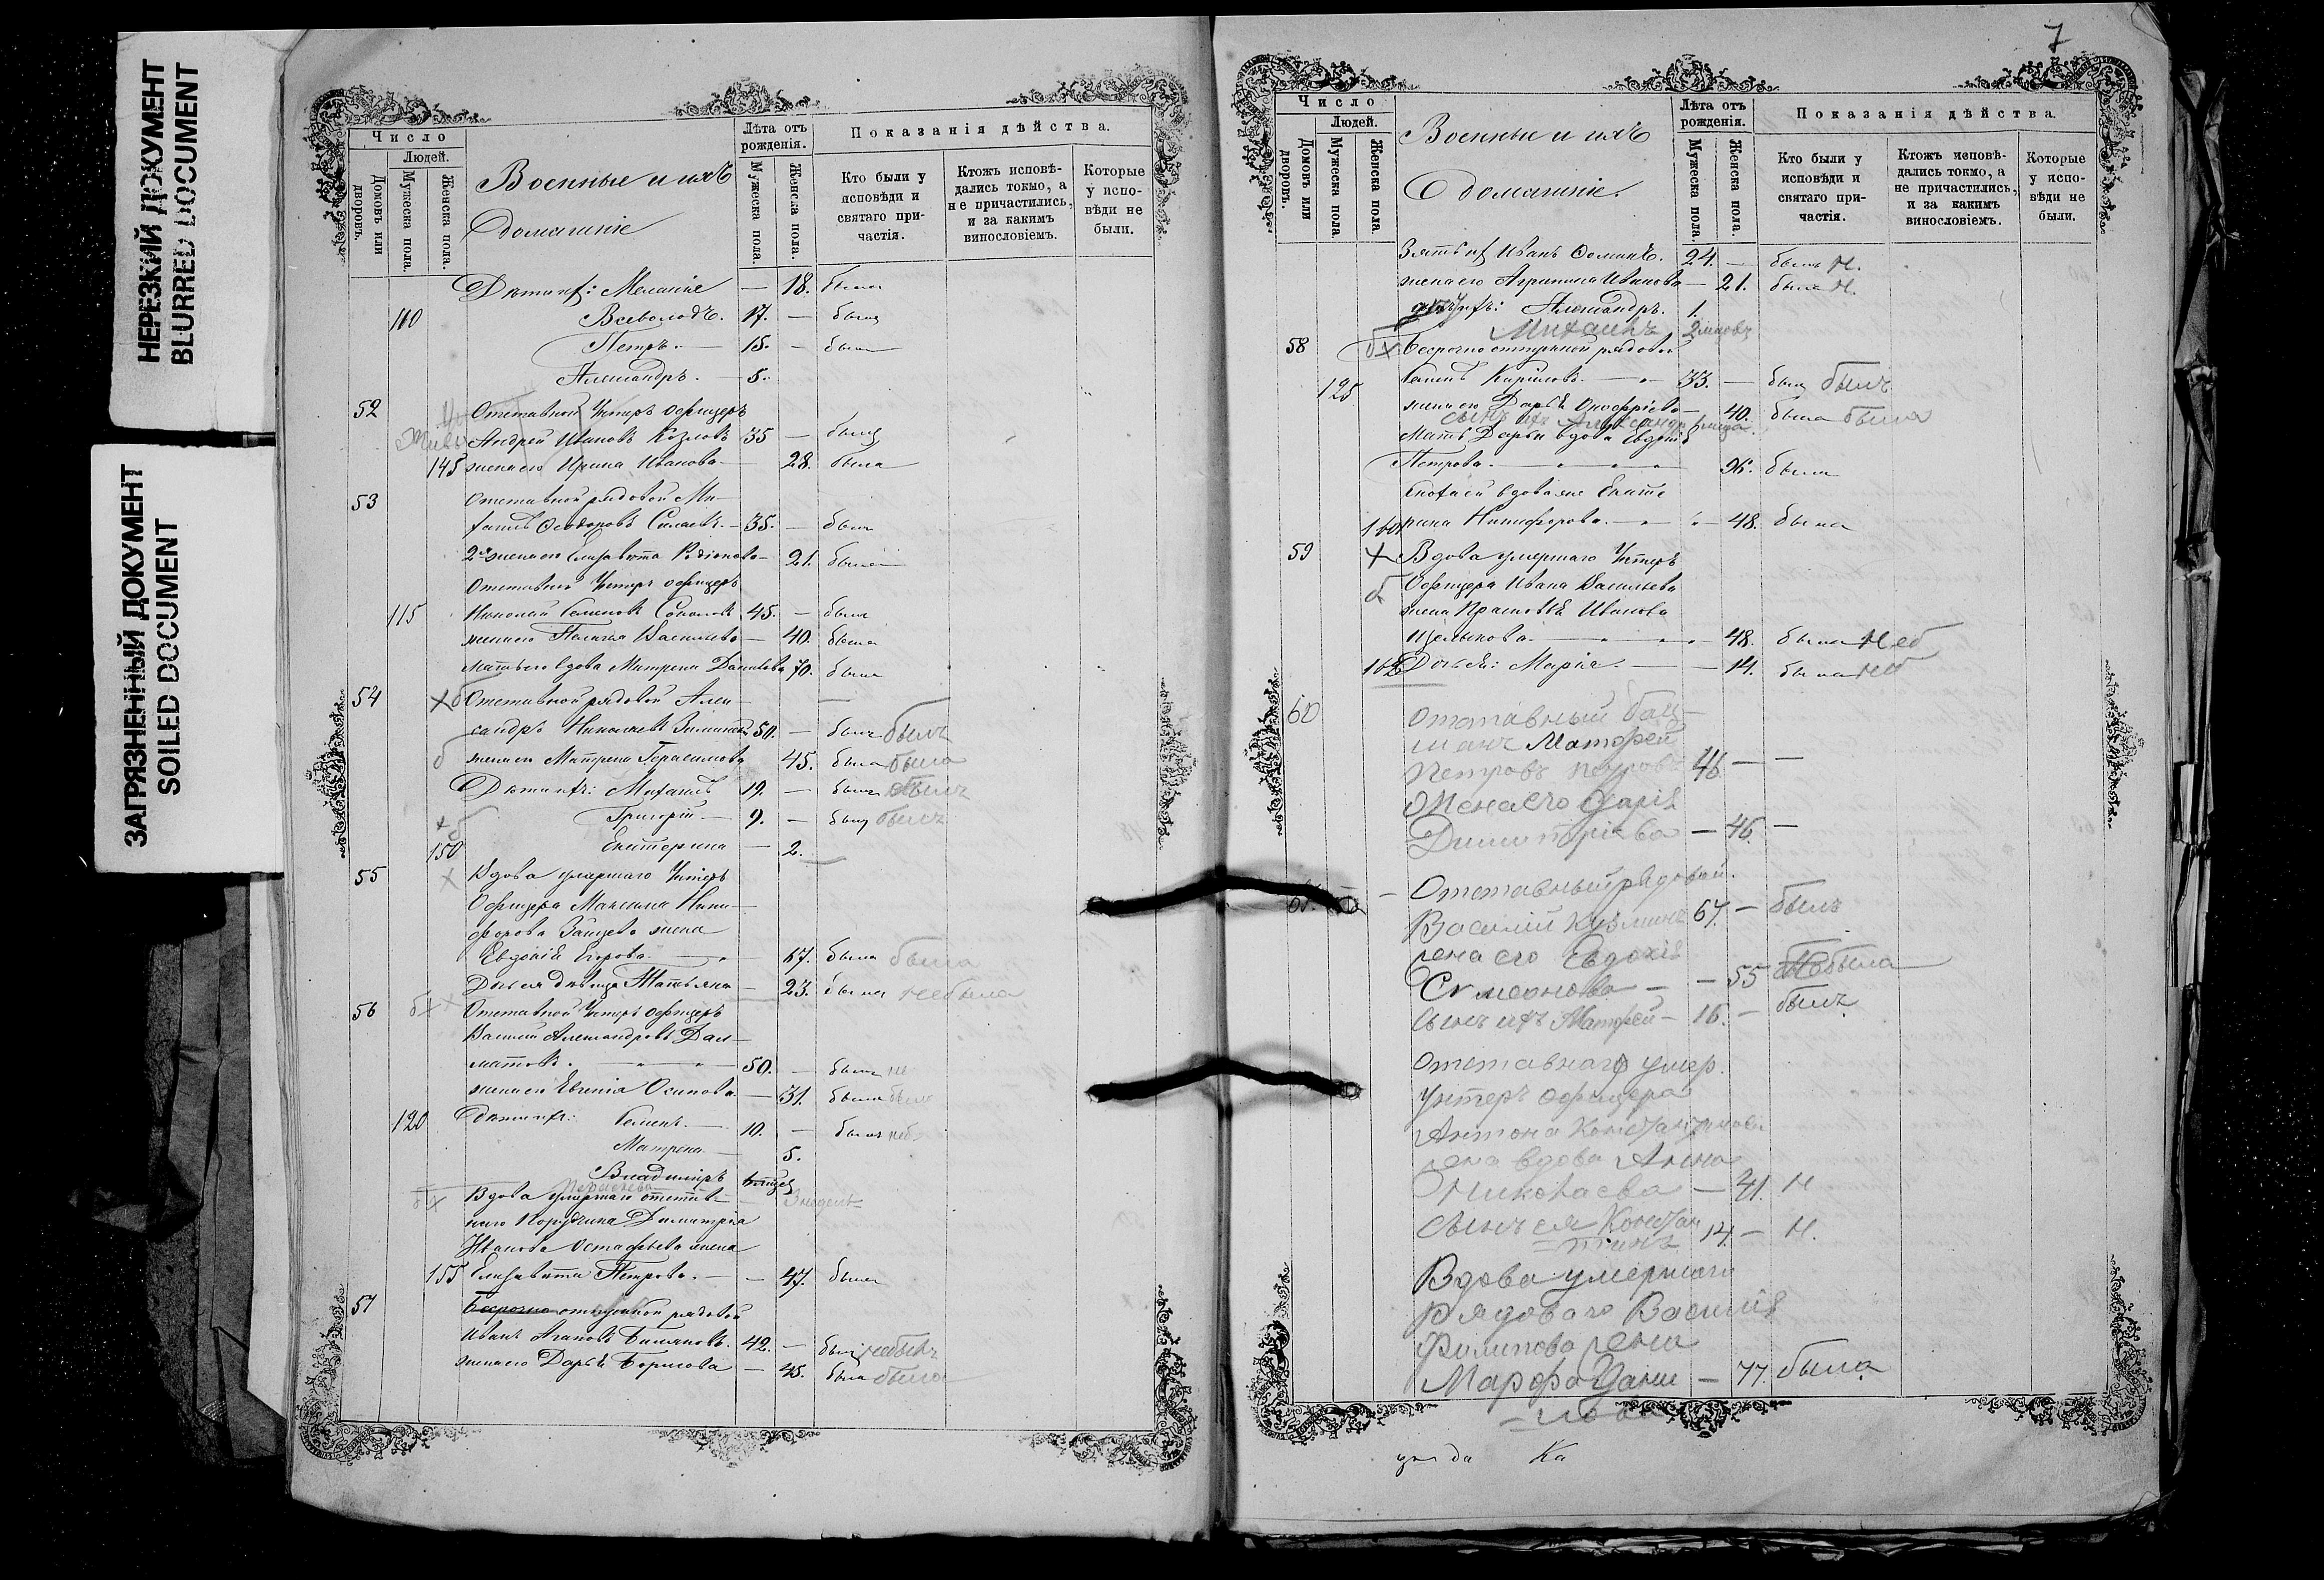 НЕРЕЗКИЙ ДОКУМЕНТ
BLURRED DOCUMENT
ЗАГРЯЗНЕННЫЙ ДОКУМЕНТ
SOILED DOCUMENT
Число
Людей.
Домовъ или дворовъ.
Мужеска пола.
Женска пола.
Военные и ихъ
домашніе
Лѣта отъ рожденія.
Мужеска пола.
Женска пола.
Показанія дѣйства.
Кто были у исповѣди и святаго причастія.
Ктожъ исповѣдались токмо, а не причастились, и за какимъ винословіемъ.
Которые у исповѣди не были.
Дѣти ихъ: Меланіе — 18. была
110 Всеволодъ. 17. — былъ
Петръ. — 15. — былъ
Александръ. — 5.
52 Отставной Унтеръ офицеръ
Андрей Ивановъ Козловъ 35 — былъ
145 жена его Ирина Иванова — 28. была
53 Отставной рядовой Ми-
хаилъ Ѳеодоровъ — 35. — былъ
2я жена его Елизавета Родіонова — 21. была
Отставной Унтеръ офицеръ
115 Николай Семеновъ Соколовъ 45. — былъ
жена его Пелагія Васильева — 40. была
мать его вдова Матрена 70. была
54 Х б Отставной рядовой Алек-
сандръ Николаевъ 50. — былъ былъ
б жена его Матрена Герасимова 45. была была
Дѣти ихъ: Михаилъ 19. — былъ былъ
Григорій — 9. — былъ былъ
150 Екатерина — 2.
55 Х Вдова умершаго Унтеръ
Офицера Максима Ники-
форова Зайцева жена
Евдокія Егорова — 67. была была
Дочь ея дѣвица Татьяна — 23. была небыла
56 Отставной Унтеръ офицеръ
Василій Александровъ Дал-
матовъ. — 50. — былъ не
жена его Евгенія Осипова — 31. была
120 Дѣти ихъ: Семенъ. — 10. — былъ неб
Матрена — 5.
Владиміръ
Вдова умершаго отстав-
наго Поручика Димитрія
Иванова Остафьева жена
155 Елизавета Петрова. — — 47. была
57 Безсрочно отпускной рядовой
Иванъ Агаповъ 42. — былъ небылъ
жена его Дарья Борисова — 45. была была
7
Число
Людей.
Домовъ или дворовъ.
Мужеска пола.
Женска пола.
Военные и ихъ
домашніе.
Лѣта отъ рожденія.
Мужеска пола.
Женска пола.
Показанія дѣйства.
Кто были у исповѣди и святаго причастія.
Ктожъ исповѣдались токмо, а не причастились, и за какимъ винословіемъ.
Которые у исповѣди не были.
Зять ихъ Иванъ Ѳоминъ. 24. — былъ Н.
жена его Агрипина Иванова — 21. была Н.
ихъ: Александръ. 1.
Михаилъ
58 Безсрочно отпускной рядовой
125 Семенъ Кириловъ — 33. — былъ былъ
жена его Дарья Онофріева — 40. была была
сынъ ихъ Александръ
Мать Дарьи вдова Евдокія
Петрова. — 96. была
вдова Екате
160 рина Никифорова — 48. была
59 Х Вдова умершаго Унтеръ
б Офицера Ивана Васильева
жена Прасковья Иванова
48. была Неб
162 Дочь ея: Марія — 14. была Неб
60 Отставный
Матфей
Петровъ Петровъ 46 — —
Жена его Дарія
Димитріева — 46. —
Отставный рядовой
Василій Кузминъ 67. — былъ
жена его Евдокія
Сѵмеонова — 55 была
Сынъ ихъ Матфей — 16. — былъ
Отставнаго умер.
Унтеръ офицера
Антона Константинова
жена вдова Анна
Николаева — 41. Н
Сынъ ея Констан
тинъ 14. — Н.
Вдова умершаго
рядоваго Василія
Филипова жена
Марфа Дани — 77. была
лова